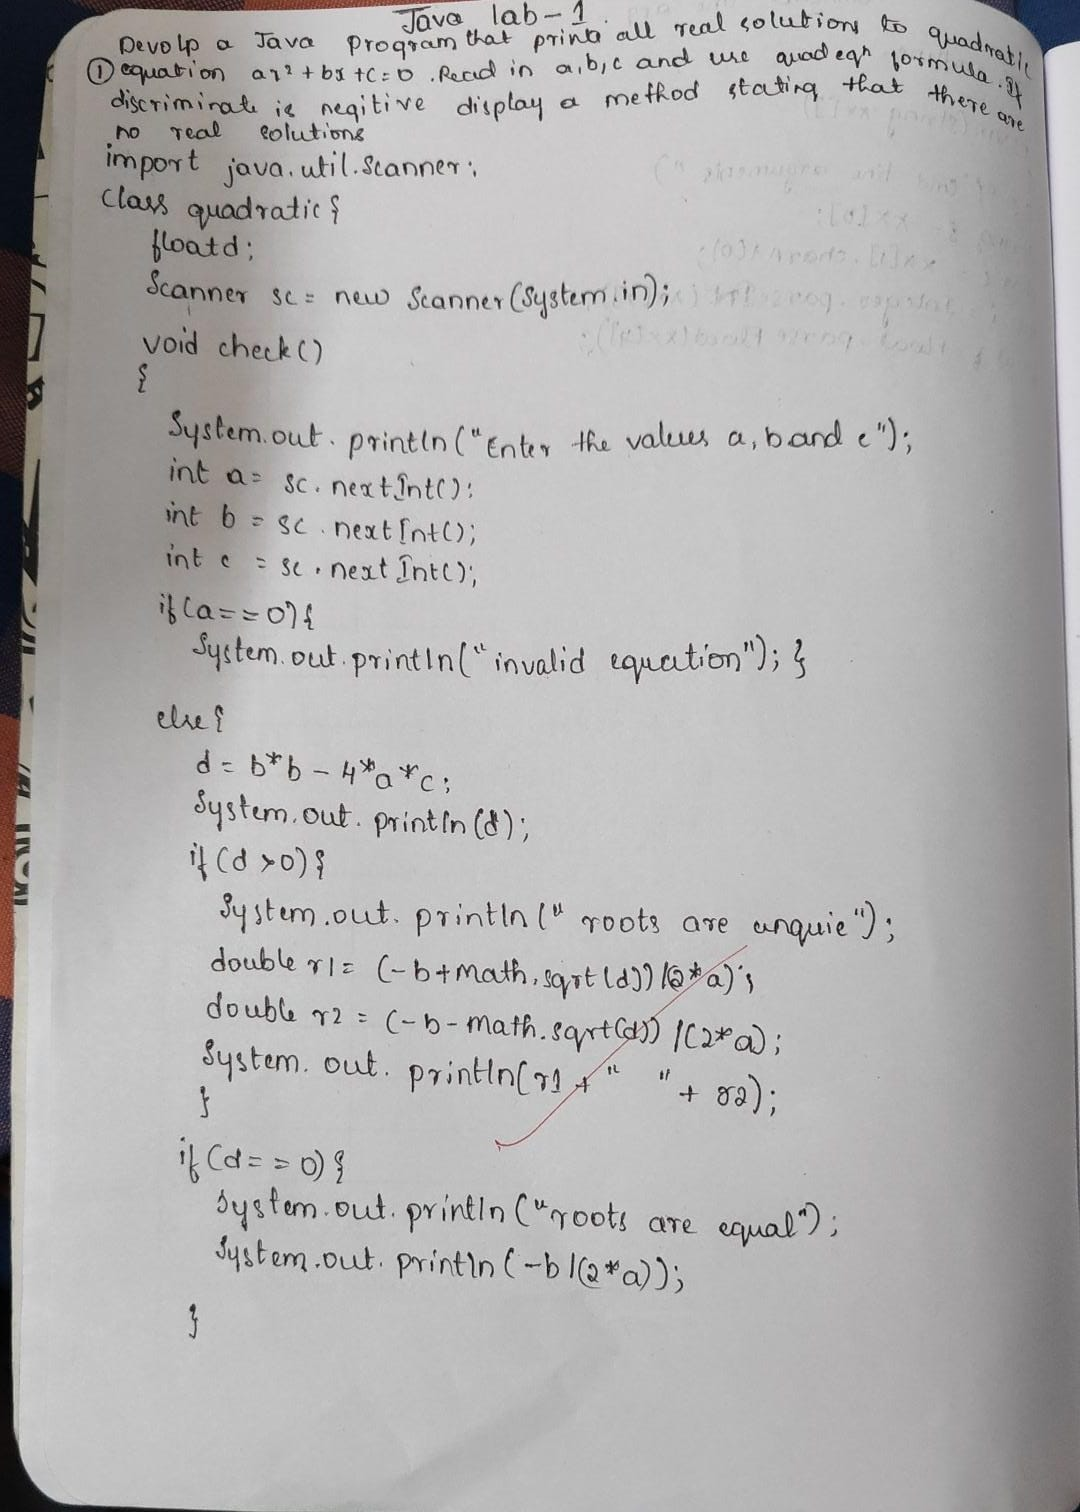 Java lab-1.
Devolp a Java program that prints all real solutions to quadratic
① equation ax² + bx + c = 0 . Read in a, b, c and use quad eqn formula. If
discriminate is negitive display a method stating that there are
no real solutions
import java.util.Scanner;
class quadratic {
float d;
Scanner sc = new Scanner(System.in);
void check()
{
System.out.println("Enter the values a, b and c");
int a = sc.nextInt();
int b = sc.nextInt();
int c = sc.nextInt();
if (a==0){
System.out.println("invalid equation"); }
else {
d = b*b - 4*a*c;
System.out.println(d);
if (d>0) {
System.out.println(" roots are unquie");
double r1 = (-b+math.sqrt(d))/(2*a);
double r2 = (-b-math.sqrt(d))/(2*a);
System.out.println(r1 + " " + r2);
}
if (d==0) {
System.out.println("roots are equal");
System.out.println(-b/(2*a));
}